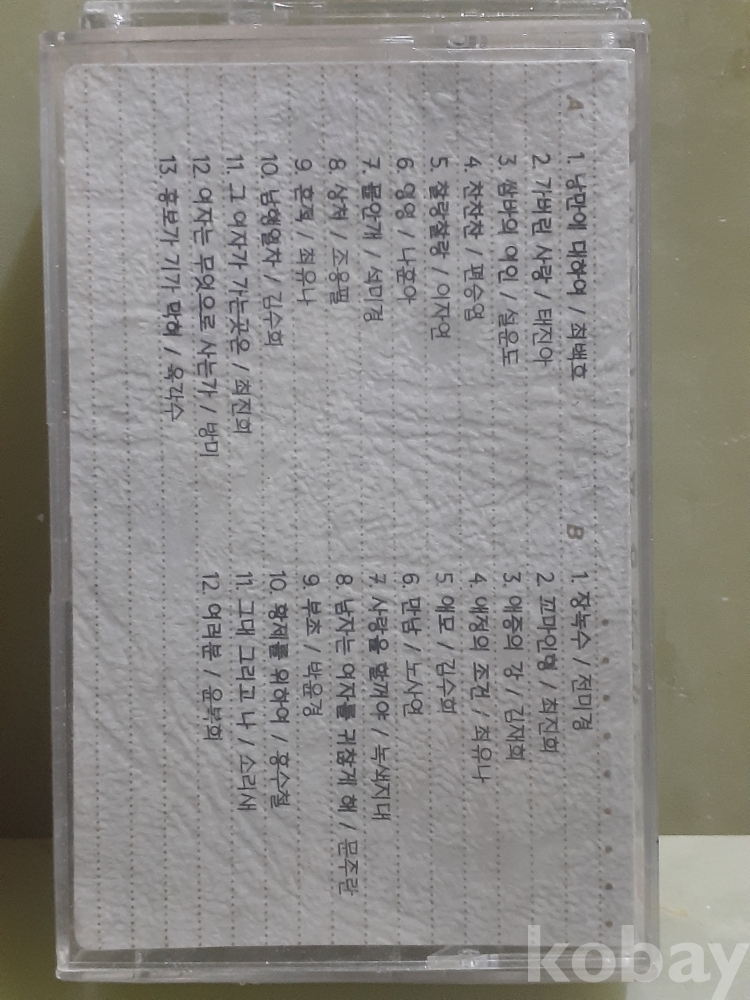 A
1. 낭만에 대하여 / 최백호
2. 가버린 사랑 / 태진아
3. 쌈바의 여인 / 설운도
4. 찬찬찬 / 편승엽
5. 찰랑찰랑 / 이자연
6. 영영 / 나훈아
7. 물안개 / 석미경
8. 상처 / 조용필
9. 흔적 / 최유나
10. 남행열차 / 김수희
11. 그 여자가 가는곳은 / 최진희
12. 여자는 무엇으로 사는가 / 방미
13. 흥보가 기가 막혀 / 육각수
B
1. 장녹수 / 전미경
2. 꼬마인형 / 최진희
3. 애증의 강 / 김재희
4. 애정의 조건 / 최유나
5. 애모 / 김수희
6. 만남 / 노사연
7. 사랑을 할꺼야 / 녹색지대
8. 남자는 여자를 귀찮게 해 / 문주란
9. 부초 / 박윤경
10. 황제를 위하여 / 홍수철
11. 그대 그리고 나 / 소리새
12. 여러분 / 윤복희
kobay